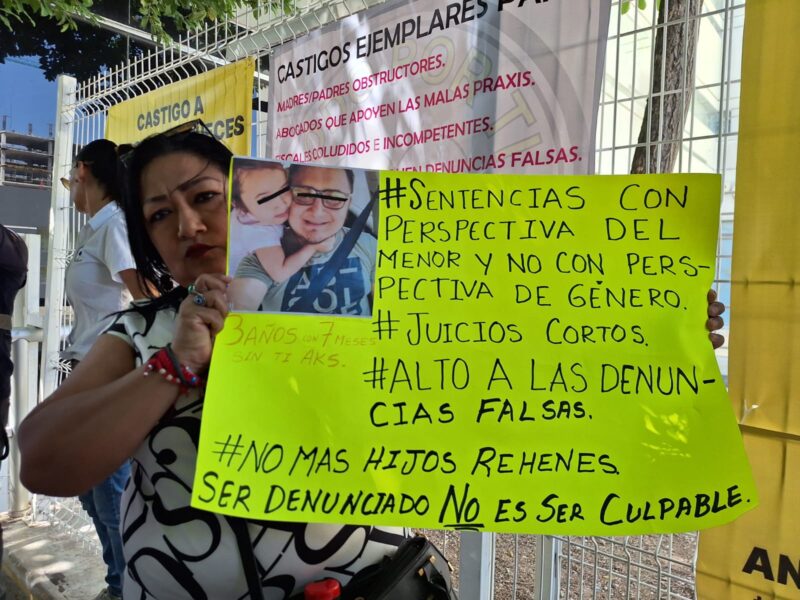 CASTIGOS EJEMPLARES PARA
MADRES/PADRES OBSTRUCTORES.
ABOCADOS QUE APOYEN LAS MALAS PRAXIS.
FISCALES COLUDIDOS E INCOMPETENTES.
DENUNCIAS FALSAS.
CASTIGO A
#SENTENCIAS CON
PERSPECTIVA DEL
MENOR Y NO CON PERS-
PECTIVA DE GÉNERO.
#JUICIOS CORTOS.
#ALTO A LAS DENUN-
CIAS FALSAS.
3 AÑOS CON 7 MESES
SIN TI AKS.
#NO MAS HIJOS REHENES.
SER DENUNCIADO NO ES SER CULPABLE.